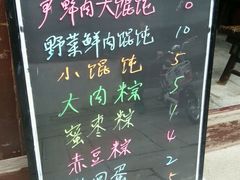 鲜肉大馄饨
野菜鲜肉馄饨 10
小馄饨 5
大肉粽 5
蜜枣粽 4
赤豆粽 4
蛋 2
5